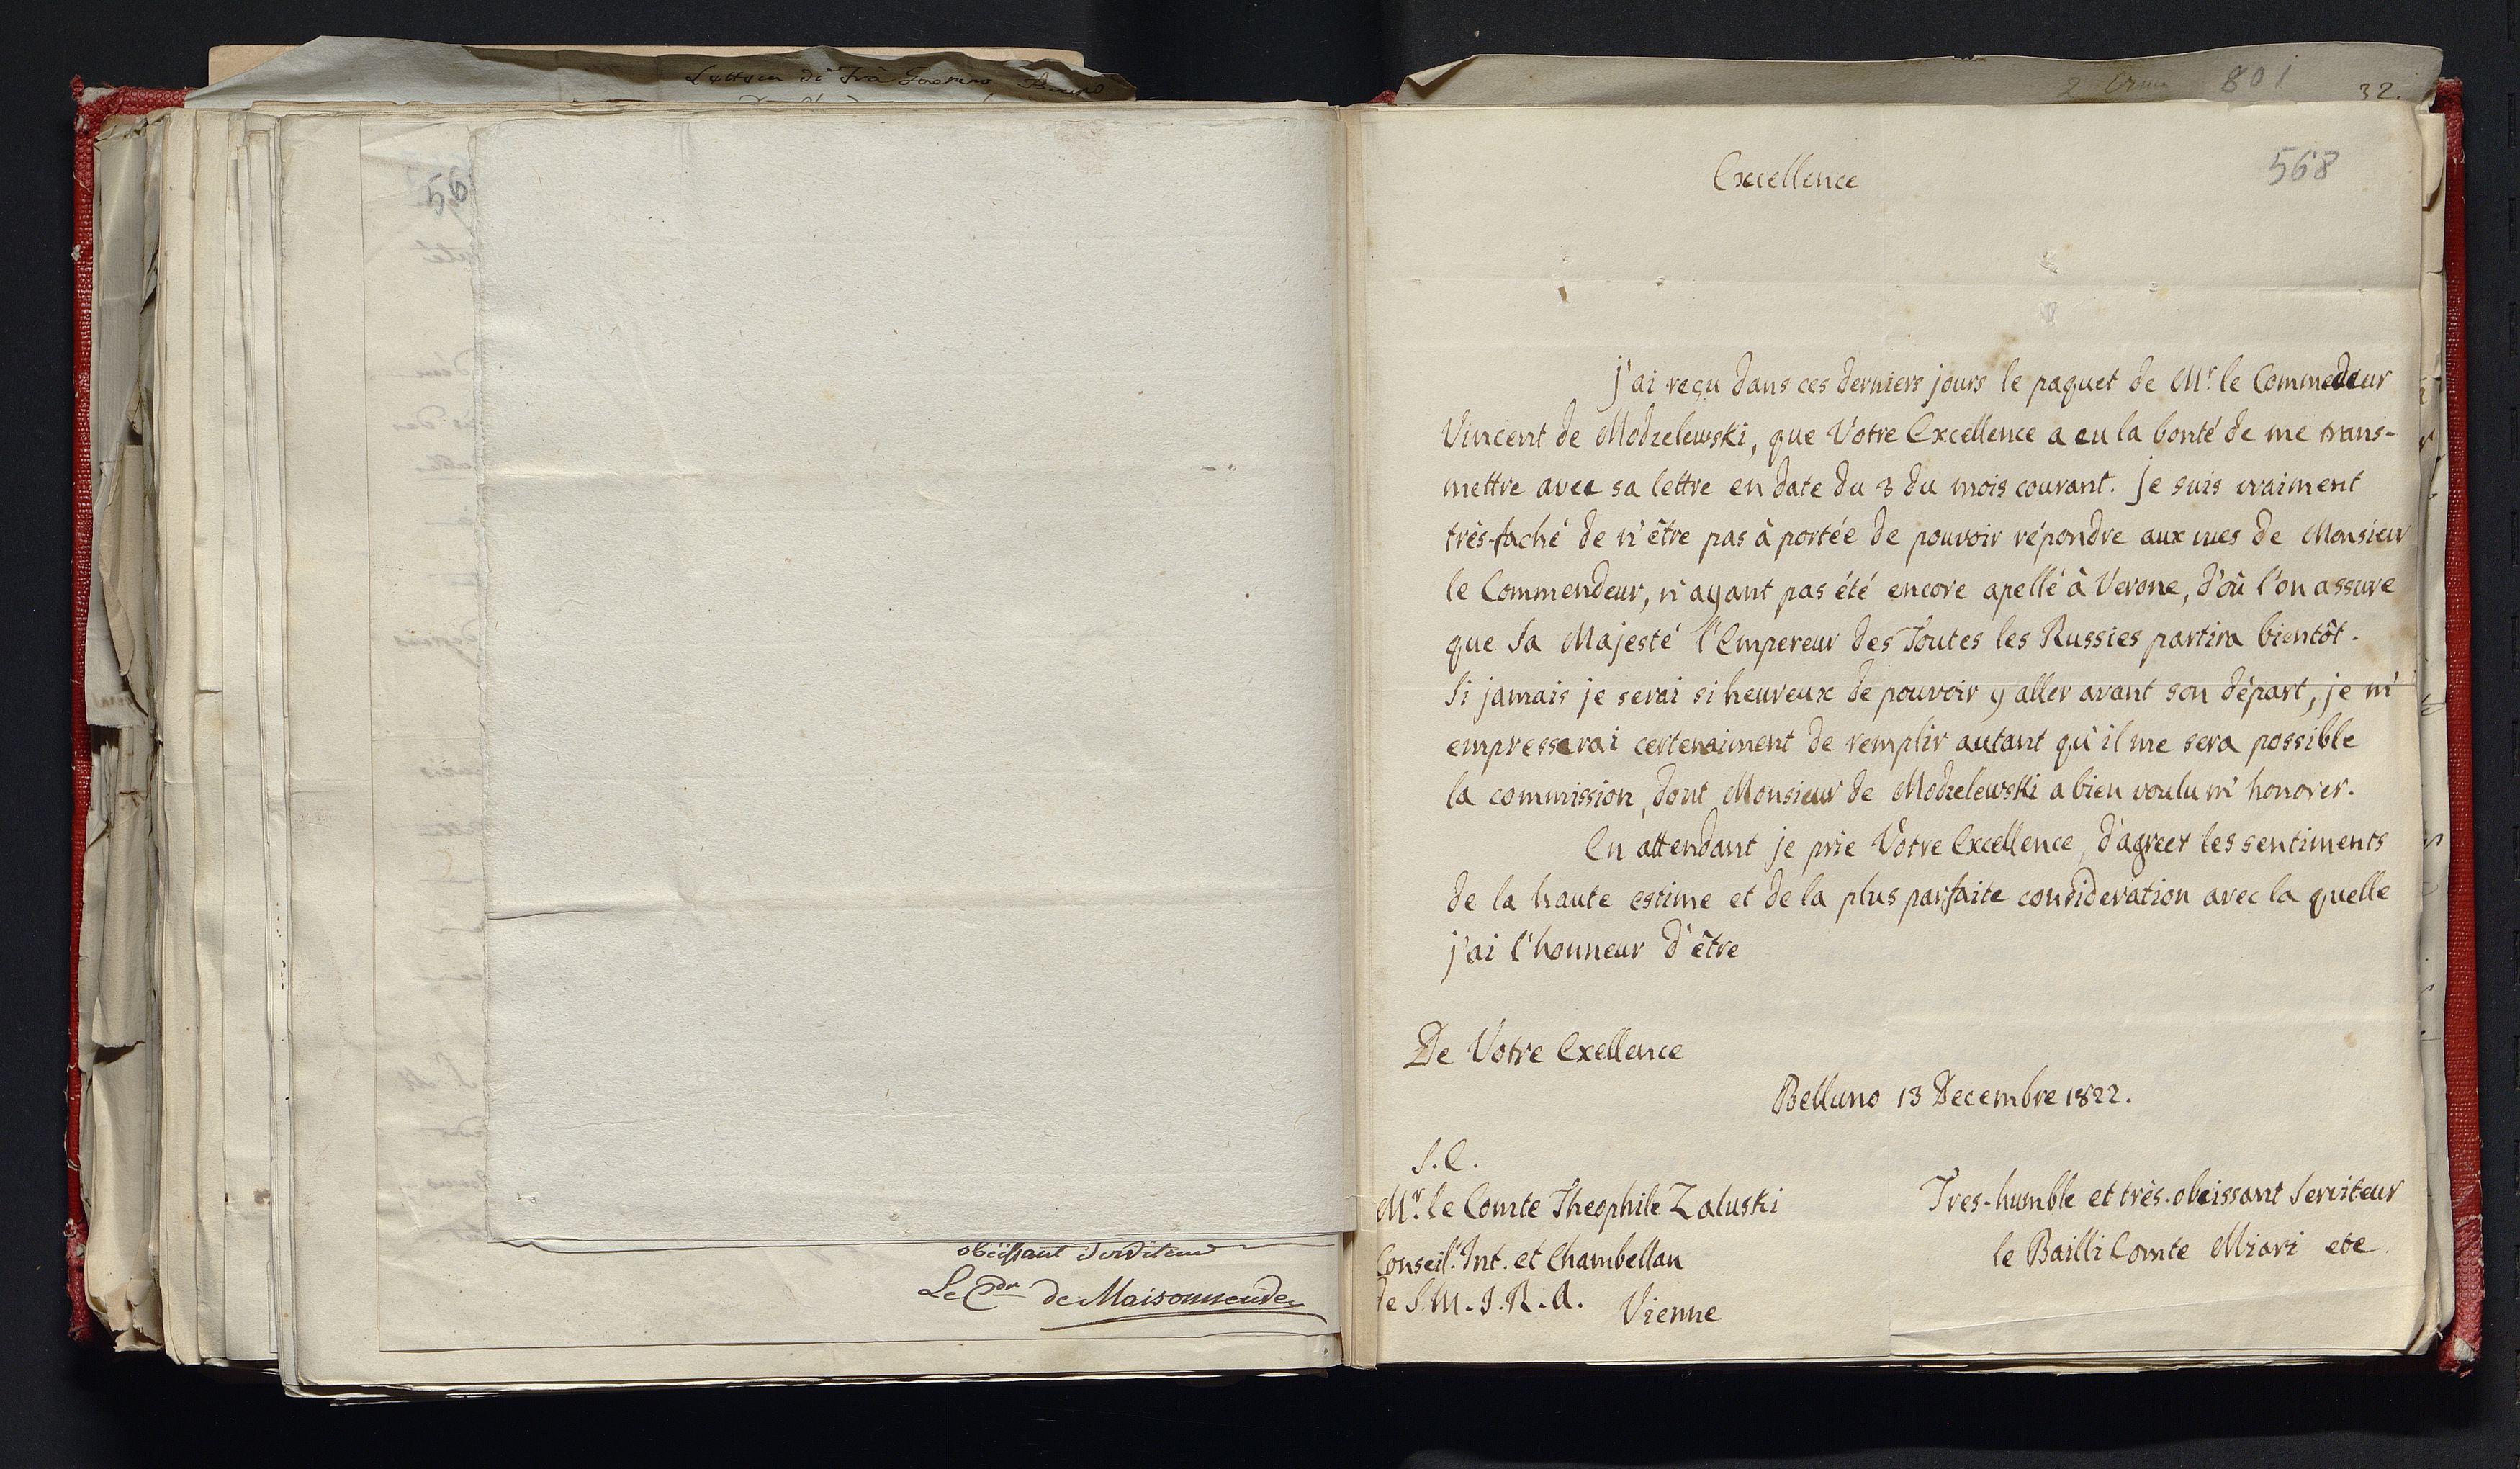 obéissant Serviteur
Le Cdr de Maisonneuve
801
32.
568
Excellence
j'ai reçu dans ces derniers jours le paquet de Mr. le Commedeur
Vincent de Modzelewski, que Votre Excellence a eu la bonté de me trans-
mettre avec sa lettre en date du 3 du mois courant. Je suis vraiment
très-faché de n'être pas à portée de pouvoir répondre aux vues de Monsieur
le Commendeur, n'ayant pas été encore apellé à Verone, d'où l'on assure
que Sa Majesté l'Empereur des Toutes les Russies partira bientôt.
Si jamais je serai si heureux de pouvoir y aller avant son départ, je m'
empresserai certenaiment de remplir autant qu'il me sera possible
la commission, dont Monsieur de Modzelewski a bien voulu m'honorer.
En attendant je prie Votre Excellence, d'agreer les sentiments
de la haute estime et de la plus parfaite consideration avec la quelle
j'ai l'honneur d'être
De Votre Exellence
Belluno 13 Decembre 1822.
S.E.
Mr. le Comte Theophile Zaluski
Conseil. Int. et Chambellan
de S.M.I.R.A. Vienne
Tres-humble et très-obeissant Serviteur
le Bailli Comte Miari etc